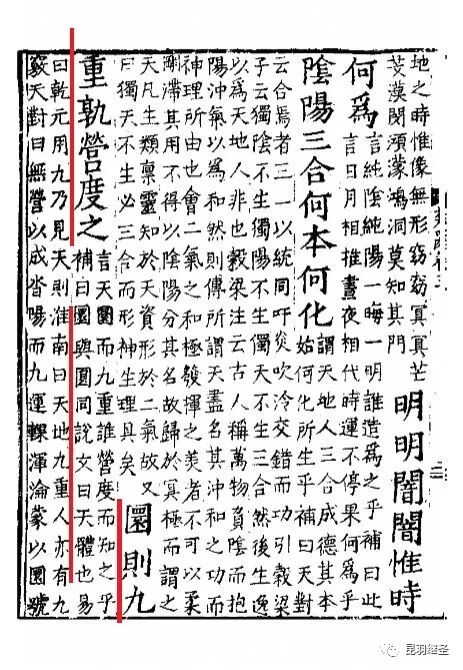 地之時惟像無形窈窈冥冥芒
芠漠閔澒濛鴻洞莫知其門
明明闇闇惟時
何爲
言純陰純陽一晦一明誰造爲之乎補曰此
言日月相推晝夜相代時運不停果何爲乎
陰陽三合何本何化
謂天地人三合成德其本
始何化所生乎補曰天對
云合焉者三一以統同吁炎吹冷交錯而功引穀梁
子云獨陰不生獨陽不生獨天不生三合然後生逸
以爲天地人非也穀梁注云古人稱萬物負陰而抱
陽沖氣以爲和然則傳所謂天蓋名其沖和之功而
神理所由也會二氣之和極發揮之美者不可以柔
剛滯其用不得以陰陽分其名故歸於冥極而謂之
天凡生類稟靈知於天資形於二氣故又
曰獨天不生必三合而形神生理具矣
圜則九
重孰營度之
言天圜而九重誰營度而知之乎
補曰圜與圓同說文曰天體也易
曰乾元用九乃見天則淮南曰天地九重人亦有九
竅天對曰無營以成沓陽而九運輠渾淪蒙以圜號
昆羽继圣